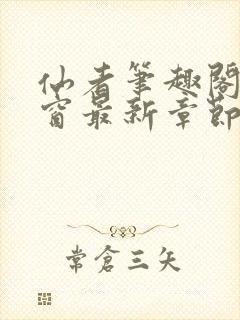 仙者筆趣閣
窗最新章節
常倉三矢